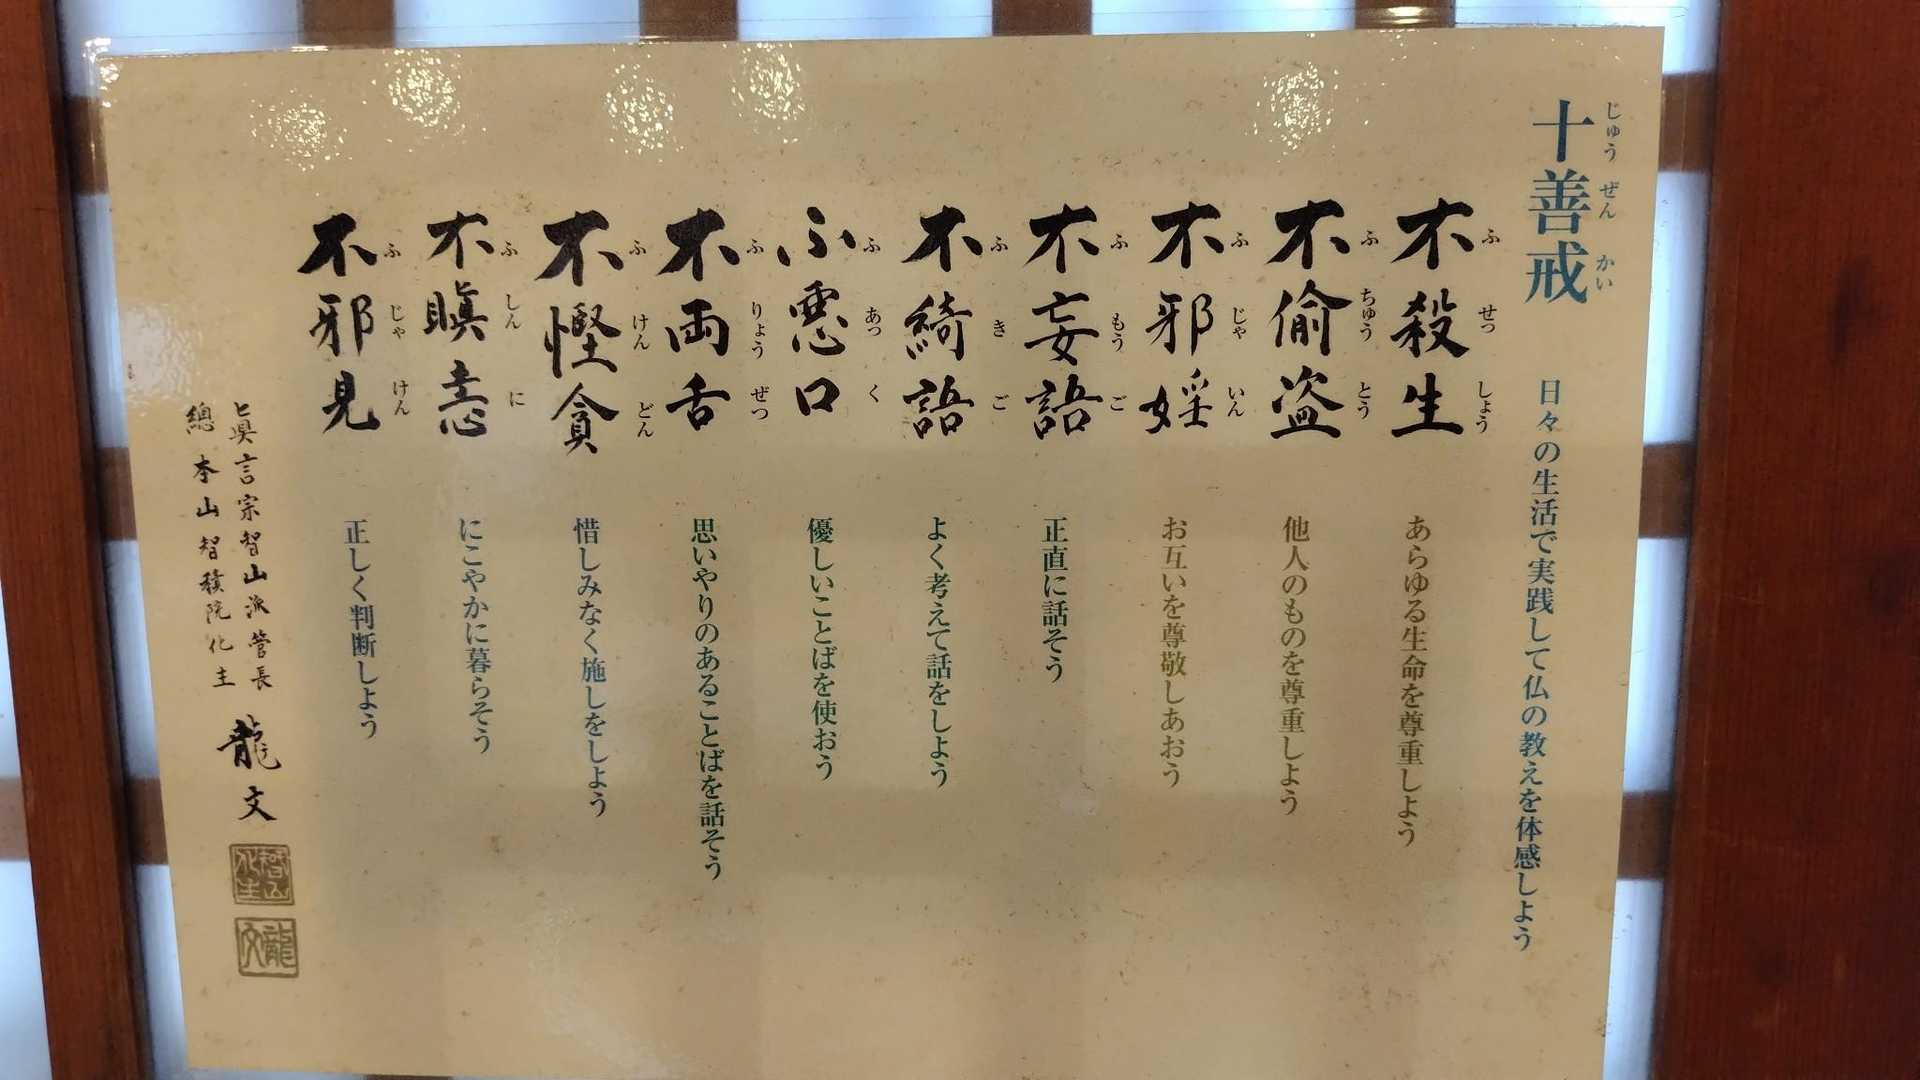 十善戒 日々の生活で実践して仏の教えを体感しよう
じゅう ぜん かい
不殺生 あらゆる生命を尊重しよう
ふ せっ しょう
不偸盗 他人のものを尊重しよう
ふ ちゅう とう
不邪婬 お互いを尊敬しあおう
ふ じゃ いん
不妄語 正直に話そう
ふ もう ご
不綺語 よく考えて話をしよう
ふ き ご
不悪口 優しいことばを使おう
ふ あっ く
不両舌 思いやりのあることばを話そう
ふ りょう ぜつ
不慳貪 惜しみなく施しをしよう
ふ けん どん
不瞋恚 にこやかに暮らそう
ふ しん に
不邪見 正しく判断しよう
ふ じゃ けん
真言宗智山派管長
總本山智積院化主
龍文
龍文